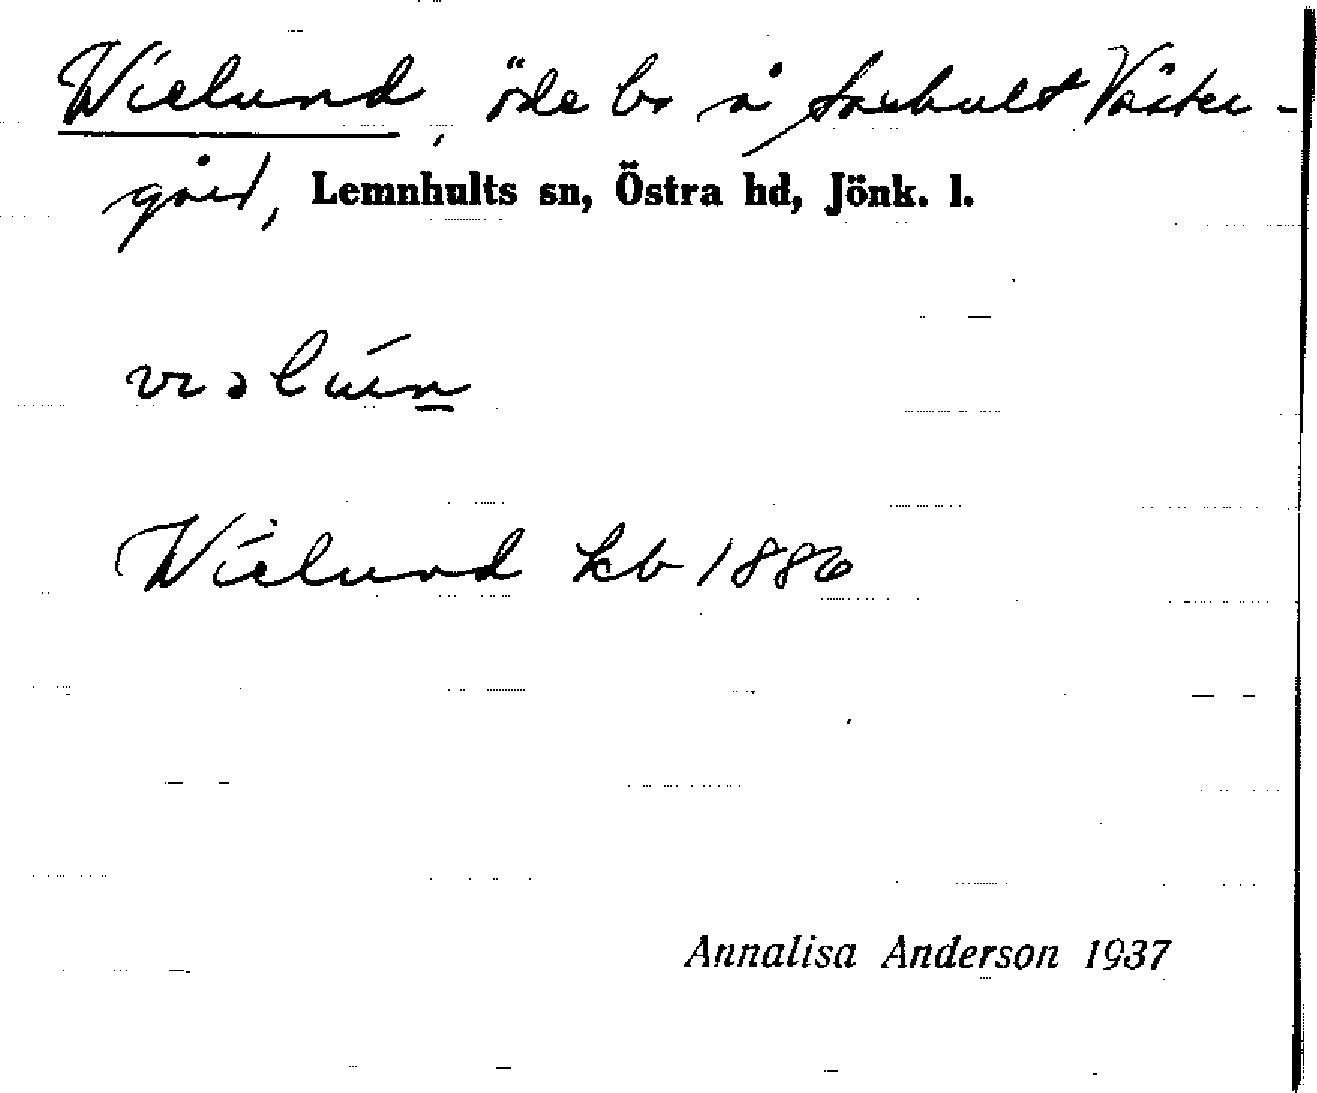 Wielund, öde bs å Foxhult Väster-
gård, Lemnhults sn, Östra hd, Jönk. l.
Wielund kb 1886
Annalisa Anderson 1937